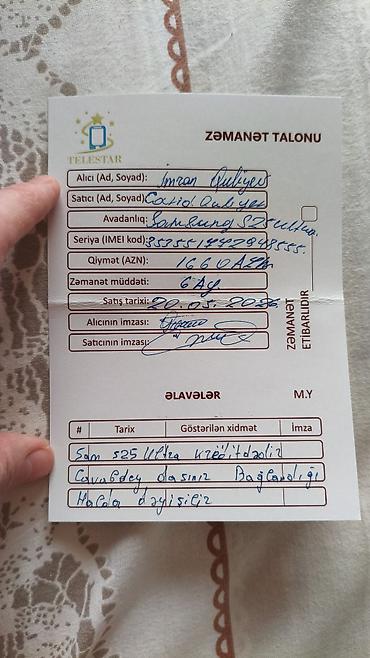 TELESTAR
ZƏMANƏT TALONU
Alıcı (Ad, Soyad): İmran Quliyev
Satıcı (Ad, Soyad): Cavid Quliyev
Avadanlıq: Samsung S25 Ultra.
Seriya (IMEI kod):
Qiymət (AZN): 1660 AZN
Zəmanət müddəti: 6 Ay
Satış tarixi: 20.05.
Alıcının imzası:
Satıcının imzası:
ZƏMANƏT
ETİBARLIDIR
ƏLAVƏLƏR
M.Y
# Tarix Göstərilən xidmət İmza
Sam S25 Ultra kreditdədir
Cavabdey daşınır Bağlandığı
Halda dəyişilir